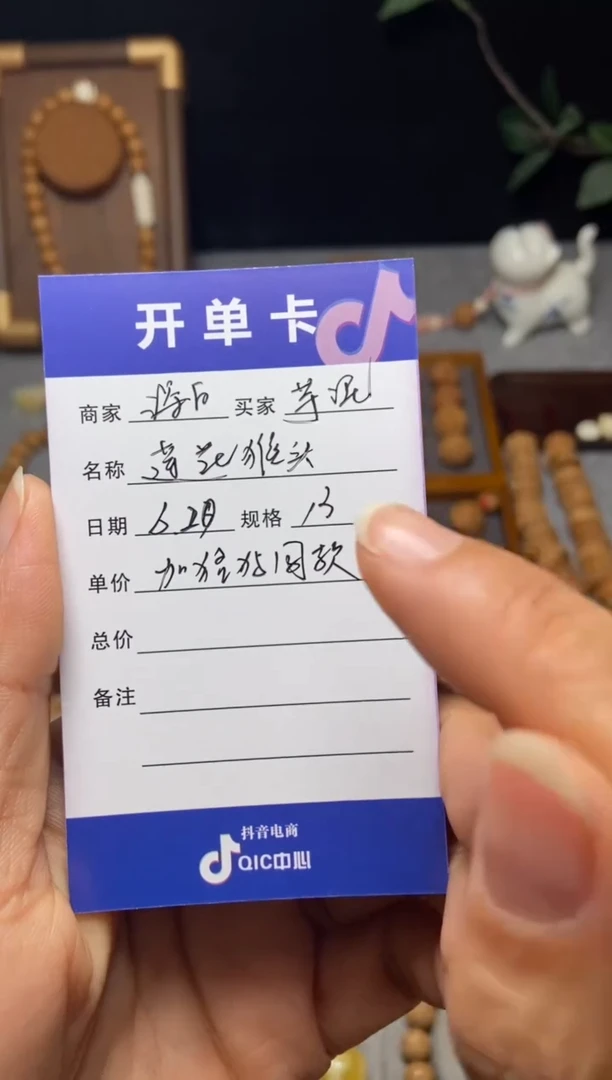 开单卡
商家 买家 芋泥
名称 莲花猴头
日期 6.28 规格 13
单价 加猩猩同款
总价
备注
抖音电商
QIC中心